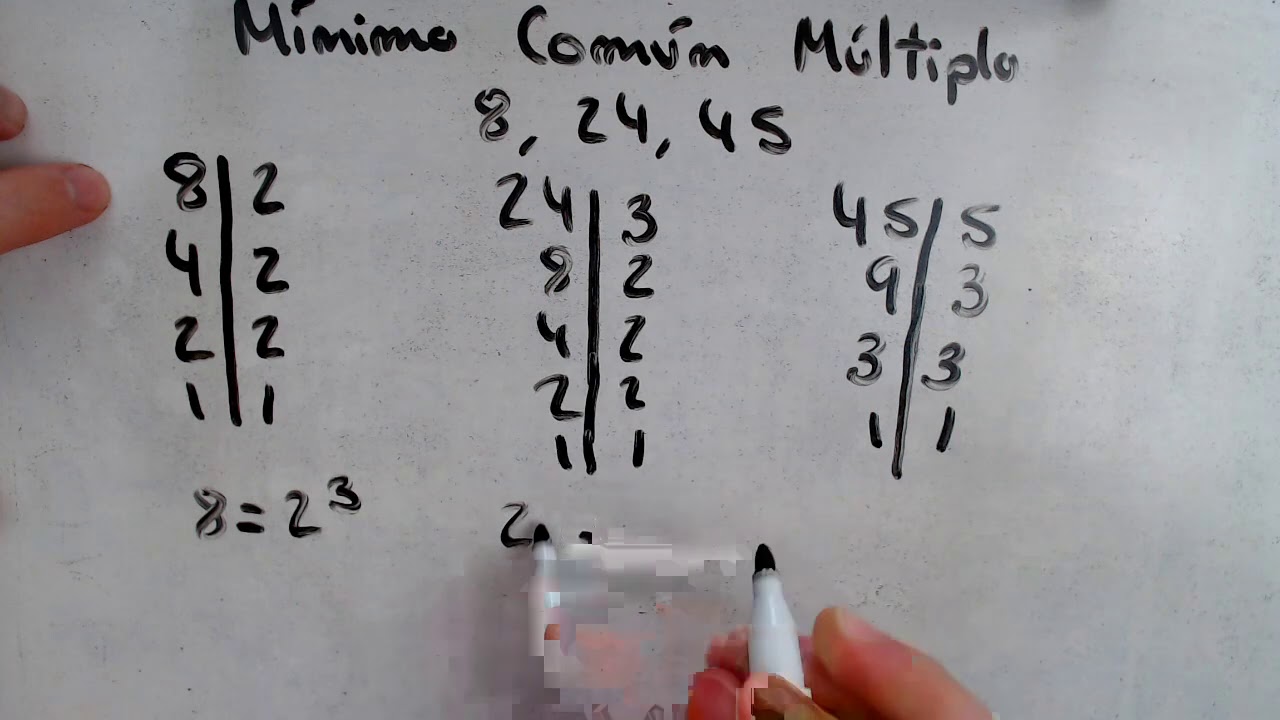 Mínimo Común Múltiplo
8, 24, 45
8 | 2
4 | 2
2 | 2
1 | 1
24 | 3
8 | 2
4 | 2
2 | 2
1 | 1
45 | 5
9 | 3
3 | 3
1 | 1
8 = 2³
2